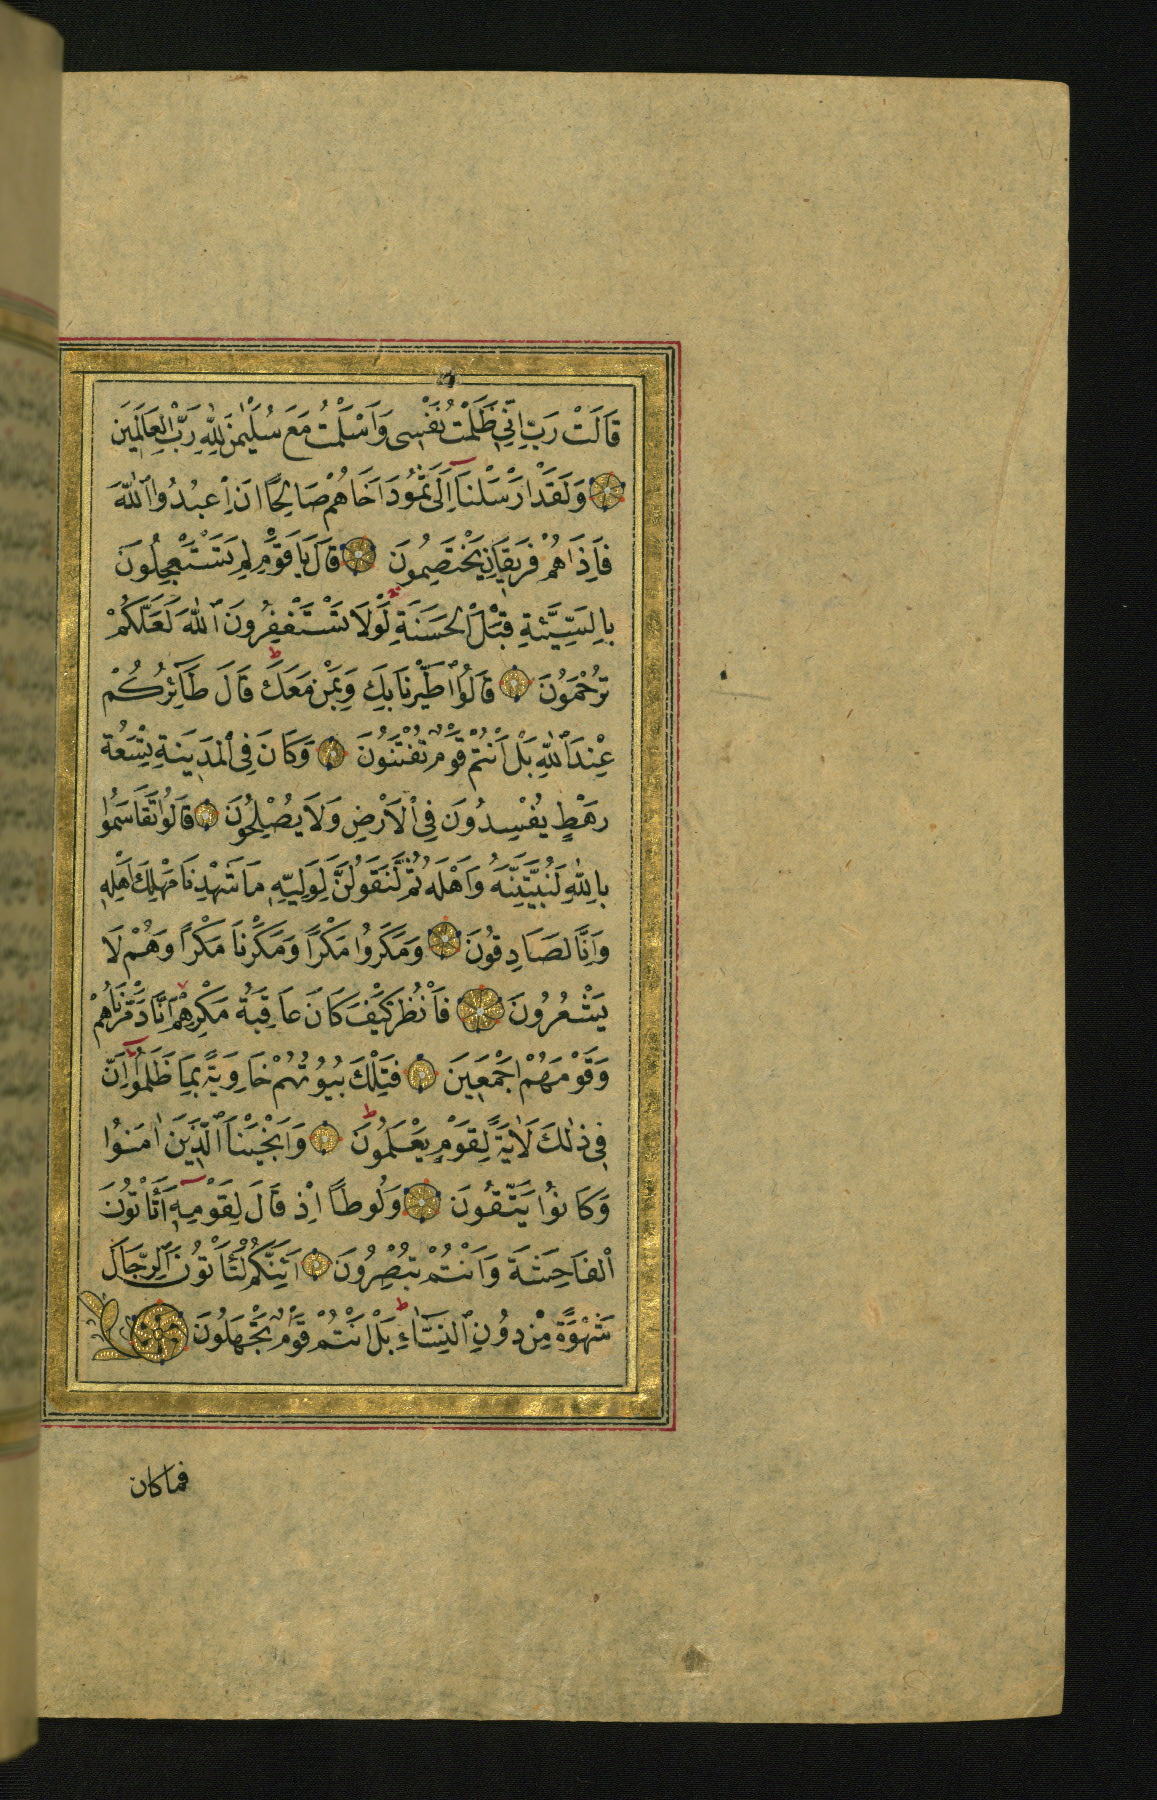 قَالَتْ رَبِّ اِنّٖي ظَلَمْتُ نَفْسٖى وَاَسْلَمْتُ مَعَ سُلَيْمٰنَ لِلّٰهِ رَبِّ الْعَالَمٖينَ
وَلَقَدْ اَرْسَلْنَا اِلٰى ثَمُودَ اَخَاهُمْ صَالِحًا اَنِ اعْبُدُوا اللّٰهَ
فَاِذَا هُمْ فَرٖيقَانِ يَخْتَصِمُونَ قَالَ يَا قَوْمِ لِمَ تَسْتَعْجِلُونَ
بِالسَّيِّئَةِ قَبْلَ الْحَسَنَةِ لَوْلَا تَسْتَغْفِرُونَ اللّٰهَ لَعَلَّكُمْ
تُرْحَمُونَ قَالُوا اطَّيَّرْنَا بِكَ وَبِمَنْ مَعَكَ قَالَ طَائِرُكُمْ
عِنْدَ اللّٰهِ بَلْ اَنْتُمْ قَوْمٌ تُفْتَنُونَ وَكَانَ فِى الْمَدٖينَةِ تِسْعَةُ
رَهْطٍ يُفْسِدُونَ فِى الْاَرْضِ وَلَا يُصْلِحُونَ قَالُوا تَقَاسَمُوا
بِاللّٰهِ لَنُبَيِّتَنَّهُ وَاَهْلَهُ ثُمَّ لَنَقُولَنَّ لِوَلِيِّهٖ مَا شَهِدْنَا مَهْلِكَ اَهْلِهٖ
وَاِنَّا لَصَادِقُونَ وَمَكَرُوا مَكْرًا وَمَكَرْنَا مَكْرًا وَهُمْ لَا
يَشْعُرُونَ فَانْظُرْ كَيْفَ كَانَ عَاقِبَةُ مَكْرِهِمْ اَنَّا دَمَّرْنَاهُمْ
وَقَوْمَهُمْ اَجْمَعٖينَ فَتِلْكَ بُيُوتُهُمْ خَاوِيَةً بِمَا ظَلَمُوا اِنَّ
فٖى ذٰلِكَ لَاٰيَةً لِقَوْمٍ يَعْلَمُونَ وَاَنْجَيْنَا الَّذٖينَ اٰمَنُوا
وَكَانُوا يَتَّقُونَ وَلُوطًا اِذْ قَالَ لِقَوْمِهٖ اَتَاْتُونَ
الْفَاحِشَةَ وَاَنْتُمْ تُبْصِرُونَ اَئِنَّكُمْ لَتَاْتُونَ الرِّجَالَ
شَهْوَةً مِنْ دُونِ النِّسَاءِ بَلْ اَنْتُمْ قَوْمٌ تَجْهَلُونَ
فما كان